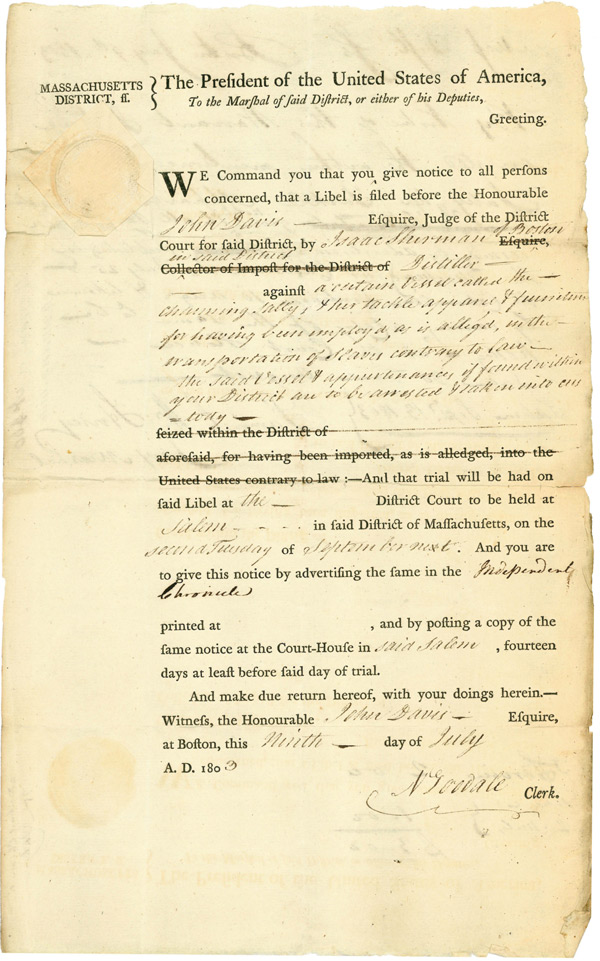 MASSACHUSETTS DISTRICT, ſſ.
The Preſident of the United States of America,
To the Marſhal of ſaid Diſtrict, or either of his Deputies,
Greeting.
WE Command you that you give notice to all perſons
concerned, that a Libel is filed before the Honourable
John Davis — Eſquire, Judge of the Diſtrict
Court for ſaid Diſtrict, by Isaac Sherman of Boston Eſquire,
in said District
Collector of Impoſt for the Diſtrict of Distiller —
— against a certain Vessel called the —
charming Sally, & her tackle apparel & furniture
for having been employ'd, as is alleg'd, in the —
transportation of Slaves contrary to law —
the said Vessel & appurtenances if found within
your District are to be arrested & taken into cus
tody —
ſeized within the Diſtrict of
aforeſaid, for having been imported, as is alledged, into the
United States contrary to law :—And that trial will be had on
ſaid Libel at the — Diſtrict Court to be held at
Salem - - - - in ſaid Diſtrict of Maſſachuſetts, on the
second Tuesday of September next. And you are
to give this notice by advertiſing the ſame in the Independent
Chronicle
printed at , and by poſting a copy of the
ſame notice at the Court-Houſe in said Salem , fourteen
days at leaſt before ſaid day of trial.
And make due return hereof, with your doings herein.—
Witneſs, the Honourable John Davis — Eſquire,
at Boſton, this Ninth — day of July
A. D. 1803
N Goodale Clerk.